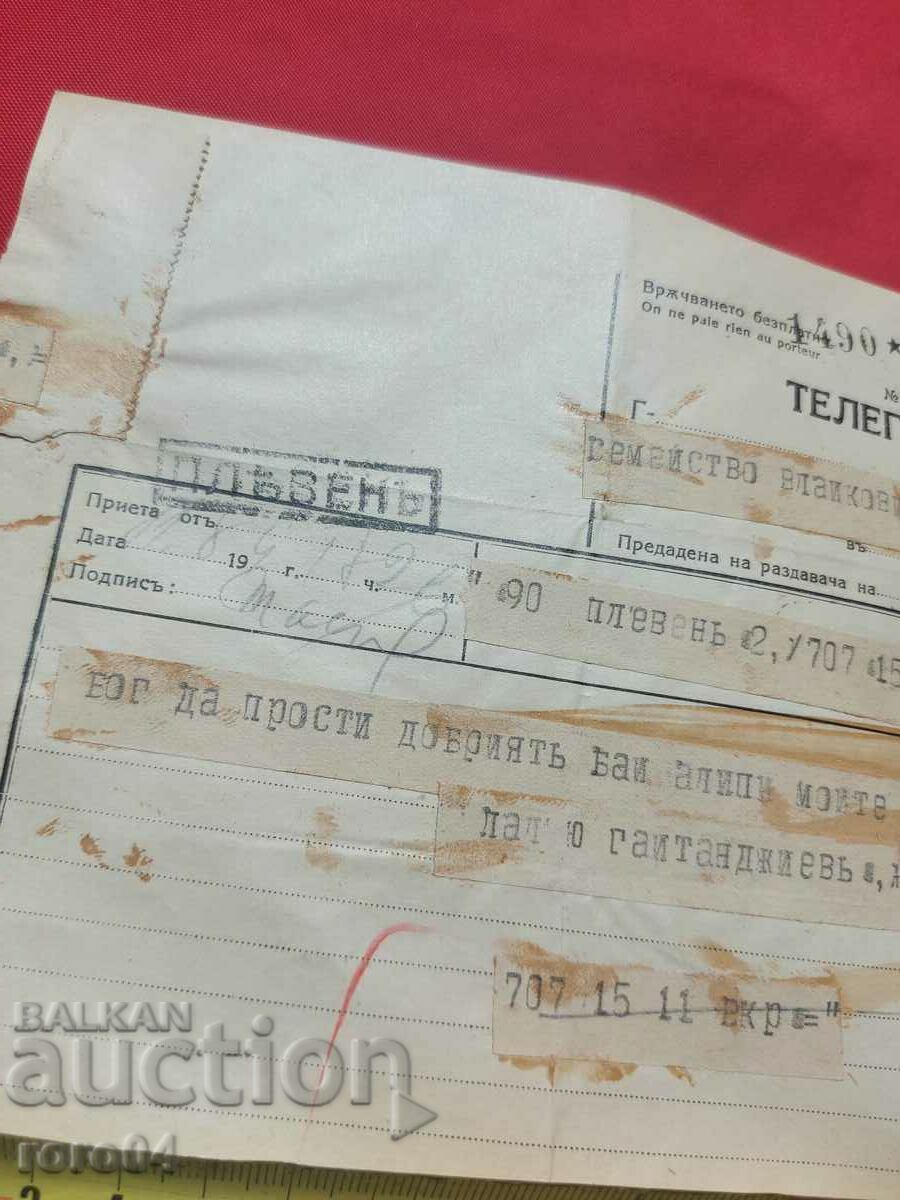 Врѫчването безплатно
On ne paie rien au porteur
1490 ★
№
ТЕЛЕГ
Г-
семейство влаикови
въ
Предадена на раздавача на
ПЛѢВЕНЪ
Приета отъ
Дата 19 г. ч. м.
Подпись:
" 90 плевень 2,/707 15
бог да прости добриять баи алипи моите
гаитанджиевь
707 15 11 вкр ="
BALKAN
auction
roro04
2